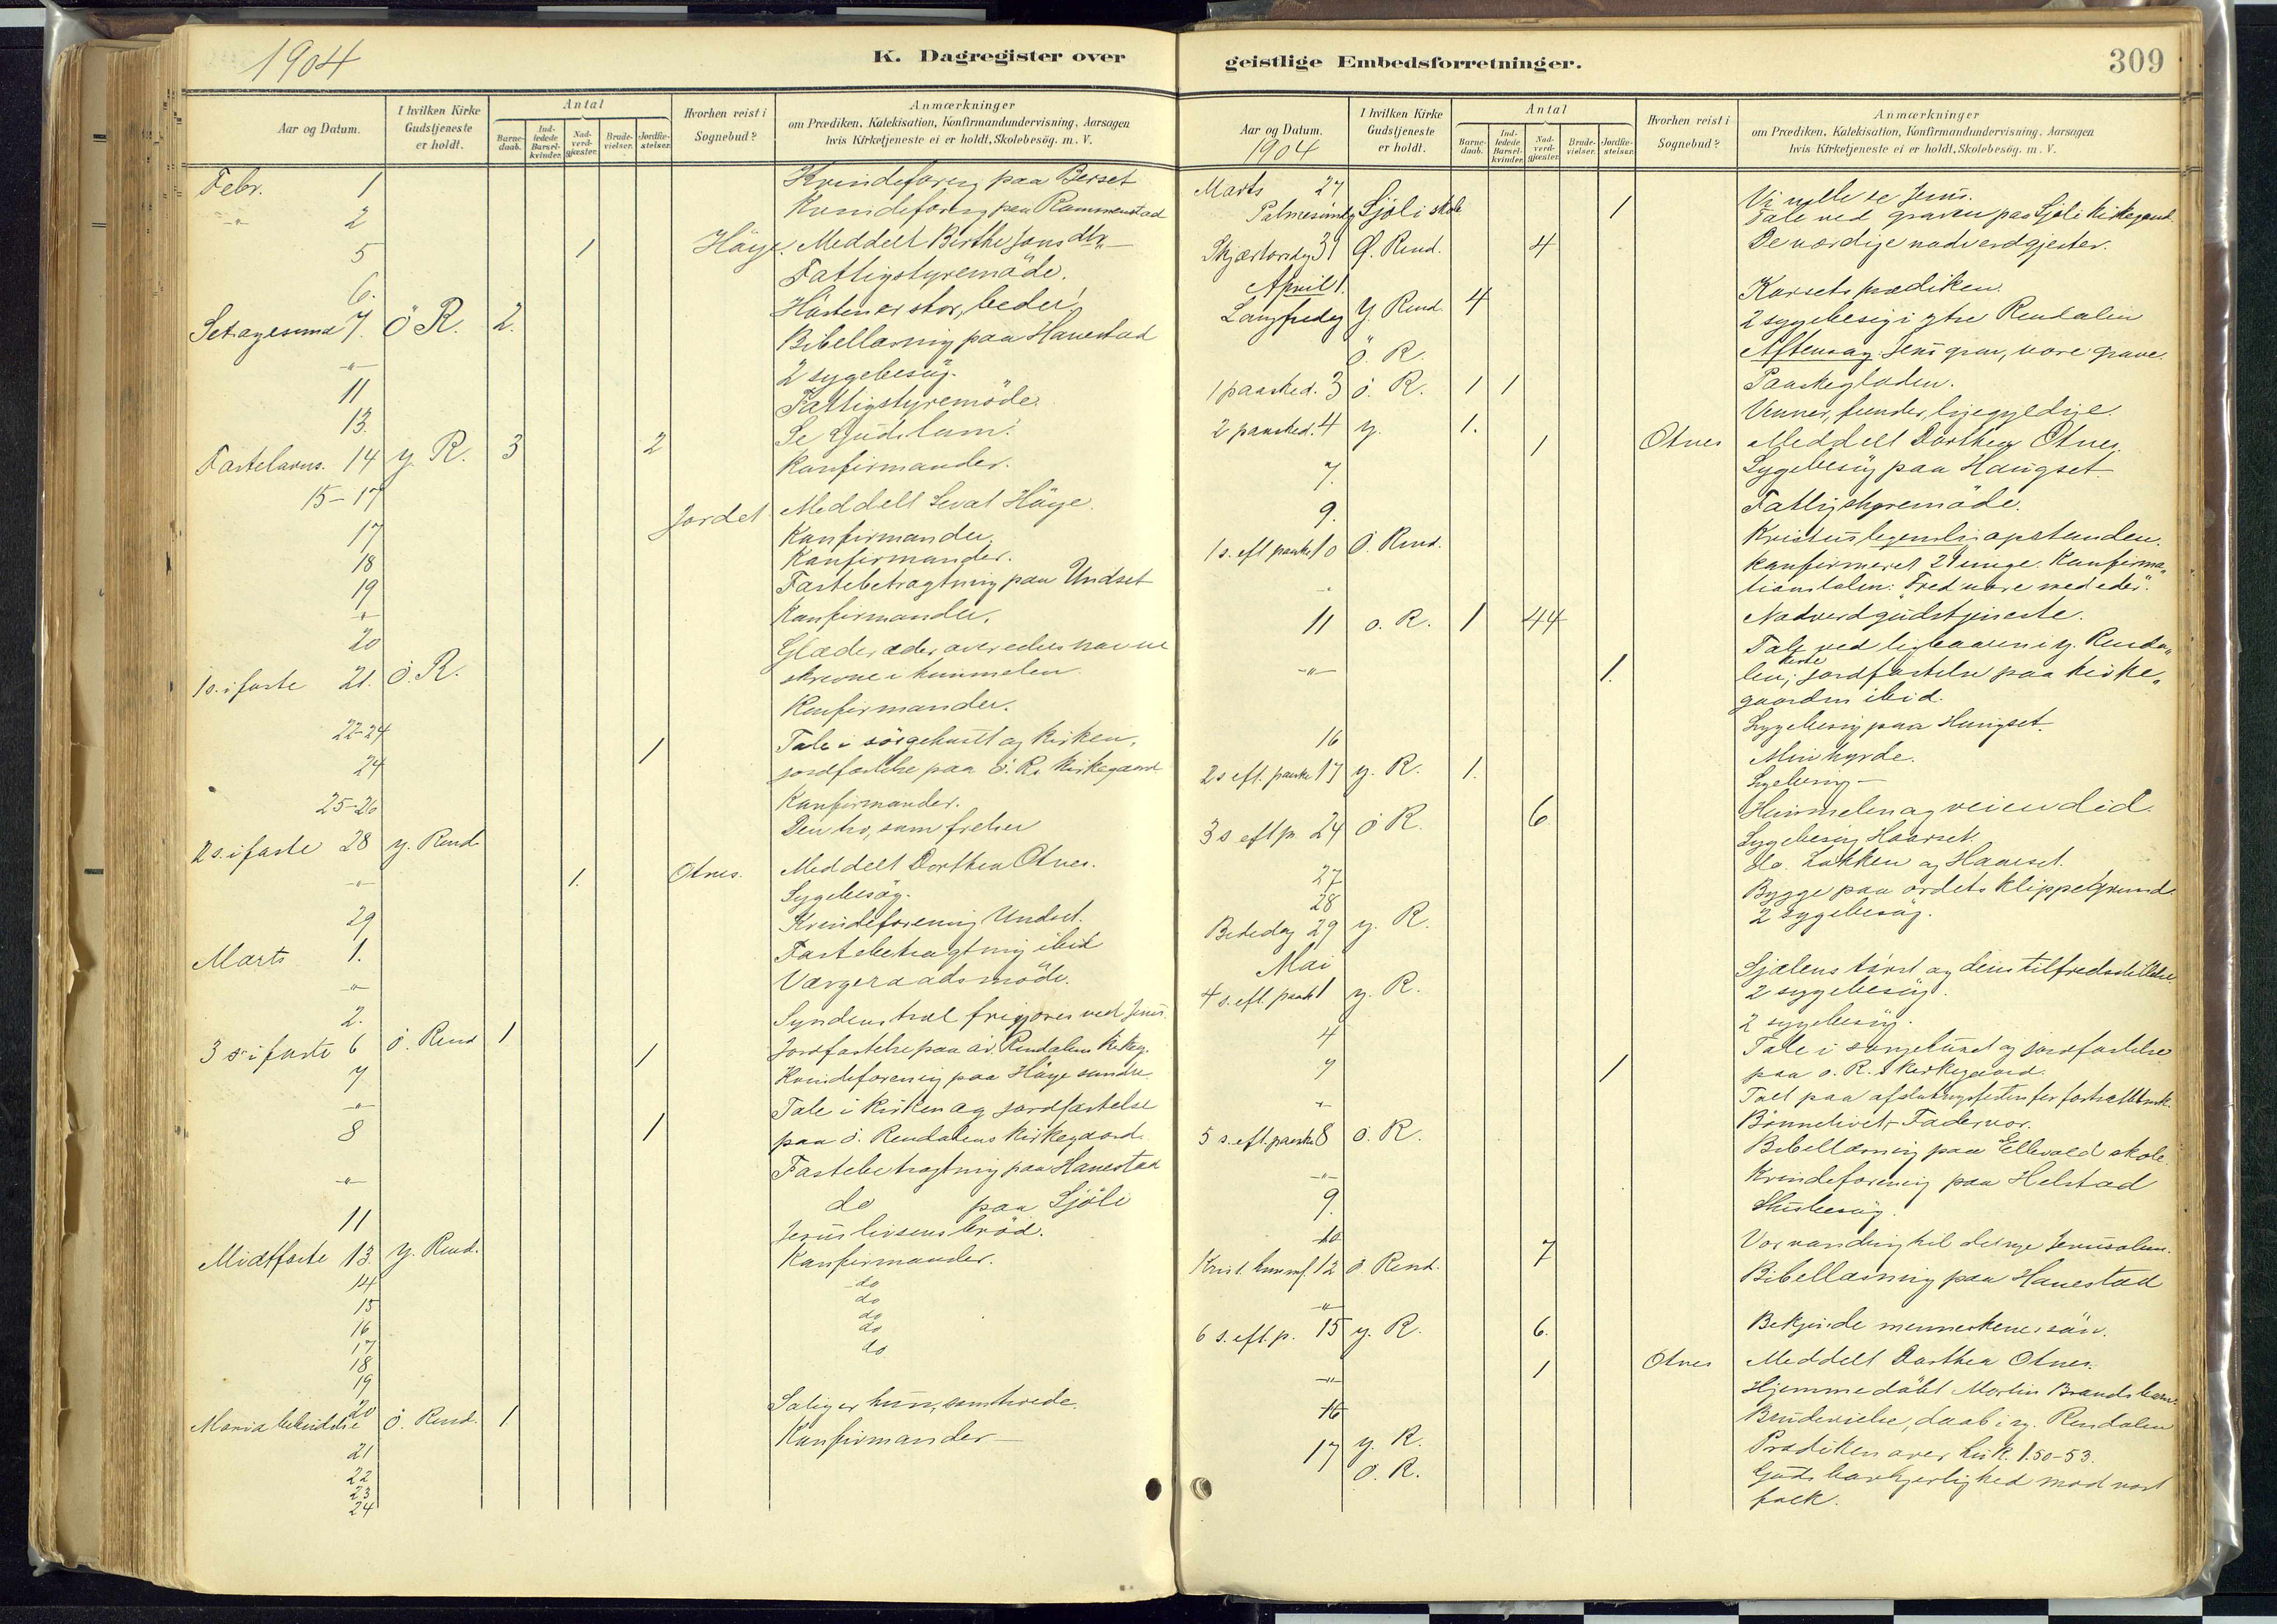 1904
K. Dagregister over
Aar og Datum.
I hvilken Kirke Gudstjeneste er holdt.
Antal
Barne-daab.
Ind-ledede Barsel-kvinder.
Nad-verd-gjæster.
Brude-vielser.
Jordfæ-stelser.
Hvorhen reist i Sognebud?
Anmærkninger
om Prædiken, Katekisation, Konfirmandundervisning, Aarsagen
hvis Kirketjeneste ei er holdt, Skolebesög. m. V.
Febr. 1 Kvindeforen paa Berset
-"- 2 Kvindeforen paa Rammenstad
5 1 Höye. Meddelt Birthe Jonsdtr
6. Fattigstyremöde.
Setragesima 7. Ö R. 2. Hösten er stor, beder!
-"- Bibellæsning paa Hanestad
11 2 sygebesög.
13. Fattigstyremöde.
Fastelavns. 14 y. R. 3 2 Se Guds lam!
15-17 Konfirmander.
17 Jordet Meddelt Sevat Höye.
18 Konfirmander.
19 Konfirmander.
-"- Fastebetragtning paa Undset
20 Konfirmander.
1 s. i faste 21. Ö. R. Glæder eder over eders navne
skrevne i himmelen.
22-24 Konfirmander.
24 1 Tale i sörgehuset og kirken,
jordfæstelse paa ö. R. kirkegaard
25-26 Konfirmander.
2 s. i faste 28 y. Rend. Den tro, som frelser
-"- 1. Otnes. Meddelt Dorthea Otnes.
29 Sygebesög.
Marts 1. Kvindeforening Undset.
-"- Fastebetragtning ibid
2. Værgeraadsmöde.
3 s. i faste 6 ö. Rend 1 Syndens træl frigjöres ved Jesus.
7 1 Jordfæstelse paa öv. Rendalens kirkeg.
-"- Kvindeforening paa Höye söndre
8 1 Tale i kirken og jordfæstelse
paa ö. Rendalens kirkegaard.
-"- Fastebetragtning paa Hanestad
11 do paa Sjöli
Midtfaste 13. y. Rend. Jesus livsens bröd.
14 Konfirmander.
15 do
16 do
17 do
18 do
19 do
20
Maria bebudelse ö. Rend. 1 Salig er hun, som trode.
21 Konfirmander
22
23
24
geistlige Embedsforretninger.
309
Aar og Datum.
1904
I hvilken Kirke Gudstjeneste er holdt.
Antal
Barne-daab.
Ind-ledede Barsel-kvinder.
Nad-verd-gjæster.
Brude-vielser.
Jordfæ-stelser.
Hvorhen reist i Sognebud?
Anmærkninger
om Prædiken, Katekisation, Konfirmandundervisning, Aarsagen
hvis Kirketjeneste ei er holdt, Skolebesög. m. V.
Marts 27 Vi ville se Jesus.
Palmesöndag Sjöli skole 1 Tale ved graven paa Sjöli kirkegaard.
Skjærtorsdag 31 Ö. Rend. 4 De værdige nadverdgjester.
April 1.
Langfredag Y. Rend. 4 Korsets prædiken.
2 sygebesög i ytre Rendalen
Ö. R. Aftensang: Jesu grav, vore grave.
1 paasked. 3 ö. R. 1 1 Paaskeglæden.
2 paasked. 4 y. 1. Venner, fiender, ligegyldige.
7. 1 Otnes Meddelt Dorthea Otnes.
Sygebesög paa Haugset
9. Fattigstyremöde.
1 s. eft paaske 10 Ö. Rend. Kristus legemlig opstanden.
-"- Konfirmeret 24 unge. Konfirma-
tionstalen: "Fred være med eder".
11 ö. R. 1 44 Nadverdgudstjeneste.
-"- 1. Tale ved ligbaaren i y. Renda-
len, jordfæstelse paa kirke-
gaarden ibid.
16 Sygebesög paa Haugset.
2 s eft. paaske 17 y. R. 1. Min hyrde.
Sygebesög
3 s eft p. 24 ö R. 6 Himmelen og veien did.
27 Sygebesög Haarset.
28 do. Løkken og Haarset.
Bededag 29 y. R. Bygge paa ordets klippegrund.
2 sygebesög.
Mai
4 s. eft. paaske 1 y. R. Sjælens törst og dens tilfredsstillelse.
2 sygebesög.
4 2 sygebesög.
7 1 Tale i sörgehuset og jordfæstelse
paa ö. R.s kirkegaard.
-"- Talt paa afslutningsfesten for
5 s. eft. paaske 8 ö. R. Bönnelivet, Fadervor.
-"- Bibellæsning paa Ellevold skole.
9. Kvindeforening paa Helstad
10 Husbesög.
Krist. himmf. 12 ö. Rend. 7 Vor vandring til det nye Jerusalem.
-"- Bibellæsning paa Hanestad
6 s. eft. p. 15 y. R. 6. Bekjende menneskenes sön.
-"- 1 Otnes Meddelt Dorthea Otnes.
16 Hjemmedöbt Martin Brænds barn.
Brudevielse, daab i y. Rendalen
17 y. R. Prædiken over Luk. 1.50-53.
Ö. R. Guds kjærlighed mod vort
folk.